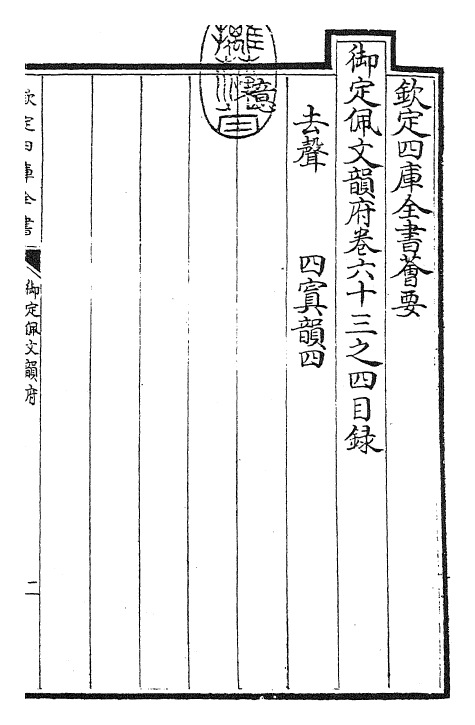 欽定四庫全書薈要
御定佩文韻府卷六十三之四目録
去聲　四寘韻四
欽定四庫全書
御定佩文韻府
二